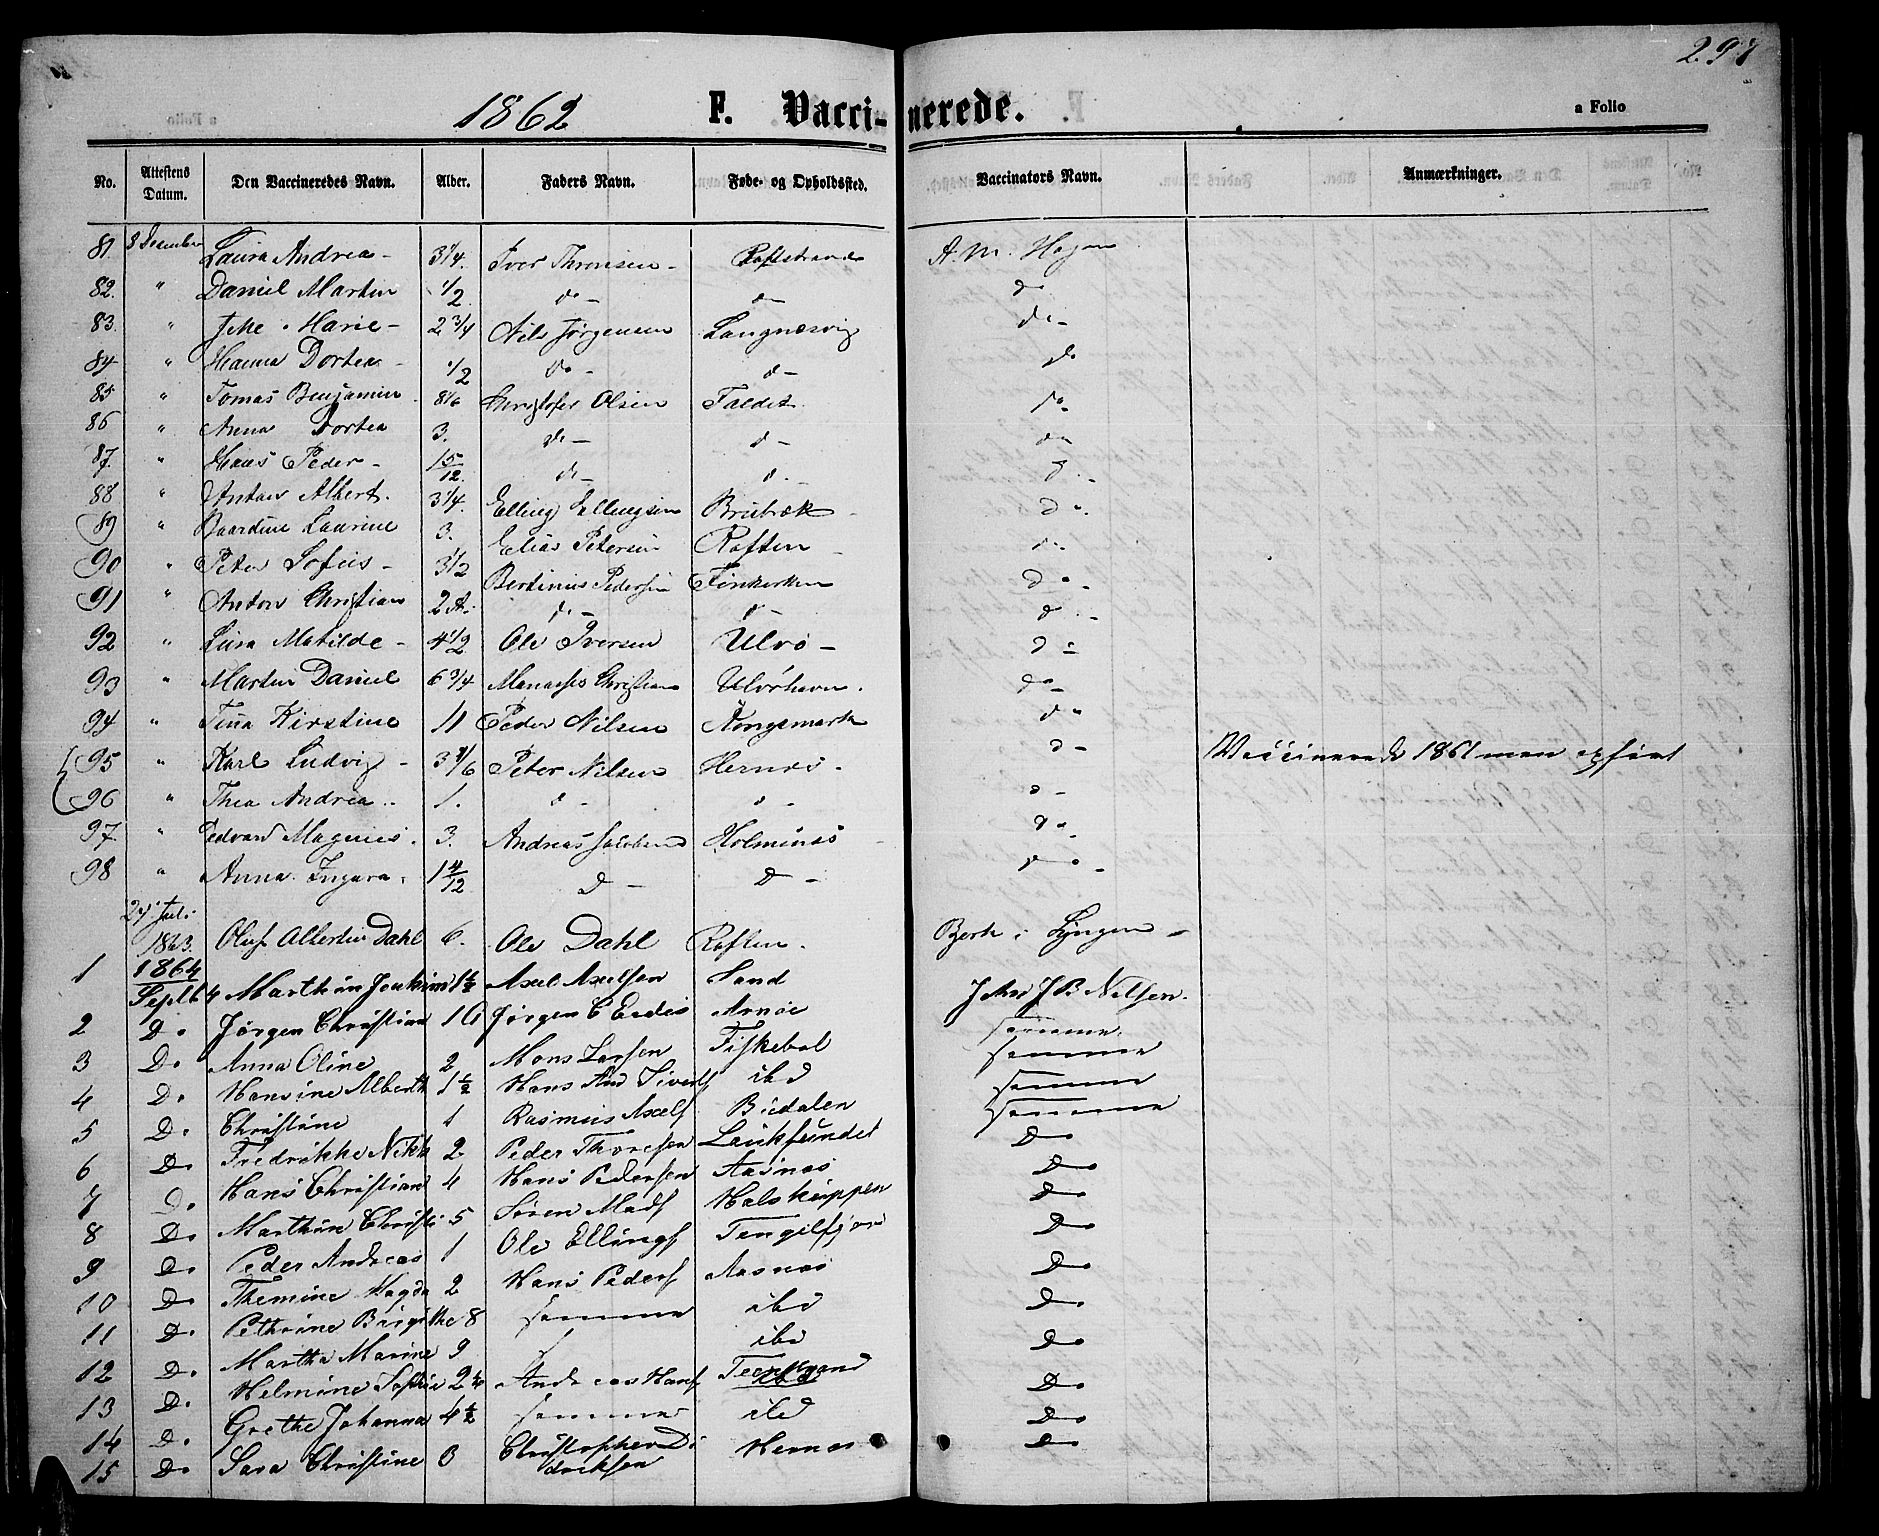 297
1862 F. Vaccinerede. a Folio
No. Attestens Datum. Den Vaccineredes Navn. Alder. Faders Navn. Føde- og Opholdssted. Vaccinators Navn. Anmærkninger.
81. 8 December Laura Andrea - 3 1/4. Iver Thronsen - A. M. Hagen
82. " Daniel Martin 1/2 do - do do
83. " Marie - 2 3/4 Nils Jørgensen Langnæsvig do -
84 " Hanna Dortea - 1/2 Do - d - do
85 " Tomas Benjamin 8 1/6 Christofer Olsen Faldet do
86 " Anna Dortea 3. do - d - do
87. " Hans Peder - 1 5/12. do - d. - d. -
88 " Anton Albert. 3 1/4. Elling Ellingsen Brubæk do.
89 " Baardine Laurine 3. Elias Petersen Raften do
90 " Peter Sofus - 3 1/2 Bertinius Pedersen Finkerken do
91 " Anton Christian 2 A. do - d - do
92 " Lina Matilde - 4 1/2 Ole Iversen Ulvø - d -
93 " Martin Daniel 6 3/4 Manasses Christians Ulvøhavn. do
94 " Tina Kirstine 11 Peder Nilsen Kongsmark do
95 " Karl Ludvig - 3 1/6 Peter Nilsen Hernæs - d - Vaccinerede 1861 men opført
96 " Thea Andrea .. 1. d - d - d -
97. " Edvard Magnus. 3. Andreas Jacobsen Holmenæs do
98 " Anna Ingara. 1 4/12 D - D - do -
Juli
1863. Oluf Albertin Dahl 6. Ole Dahl Raften. Berh i Lyngen -
1 1864 Septb 4 Marthin Joakim 1 1/2 Axel Axelsen Sand John J B Nilsen.
2 Do Jørgen Christian 10 Jørgen C Arnøe samme
3 Do Anna Oline 2 Mons Larsen Fiskebøl samme
4 Do Hansine Alberth 1 1/2 Hans And Siverts ibd samme
5 Do Christine 1 Rasmus Axels Budalen samme
6 Do Fredrikke Nikk 2 Peder Thoresen Laukfundet Do
7 Do Hans Christian 4 Hans Pedersen Aasnæs Do
8 Do Marthin Christi 5 Søren Mads Halskuppen Do
9 Do Peder Andreas 1 Ole Ellings Tengelfjord Do
10 Do Themine Magda 2 Hans Peders Aasnæs Do
11 Do Pethrine Birgithe 8 samme ibd Do
12 Do Martha Marine 9 ibd Do
13 Do Helmine Sofie 2 Andreas Hans Do
14 Do Grethe Johanna 4 1/2 samme ibd Do
15 Do Sara Christine 3 Christopher Didriksen Hernæs Do